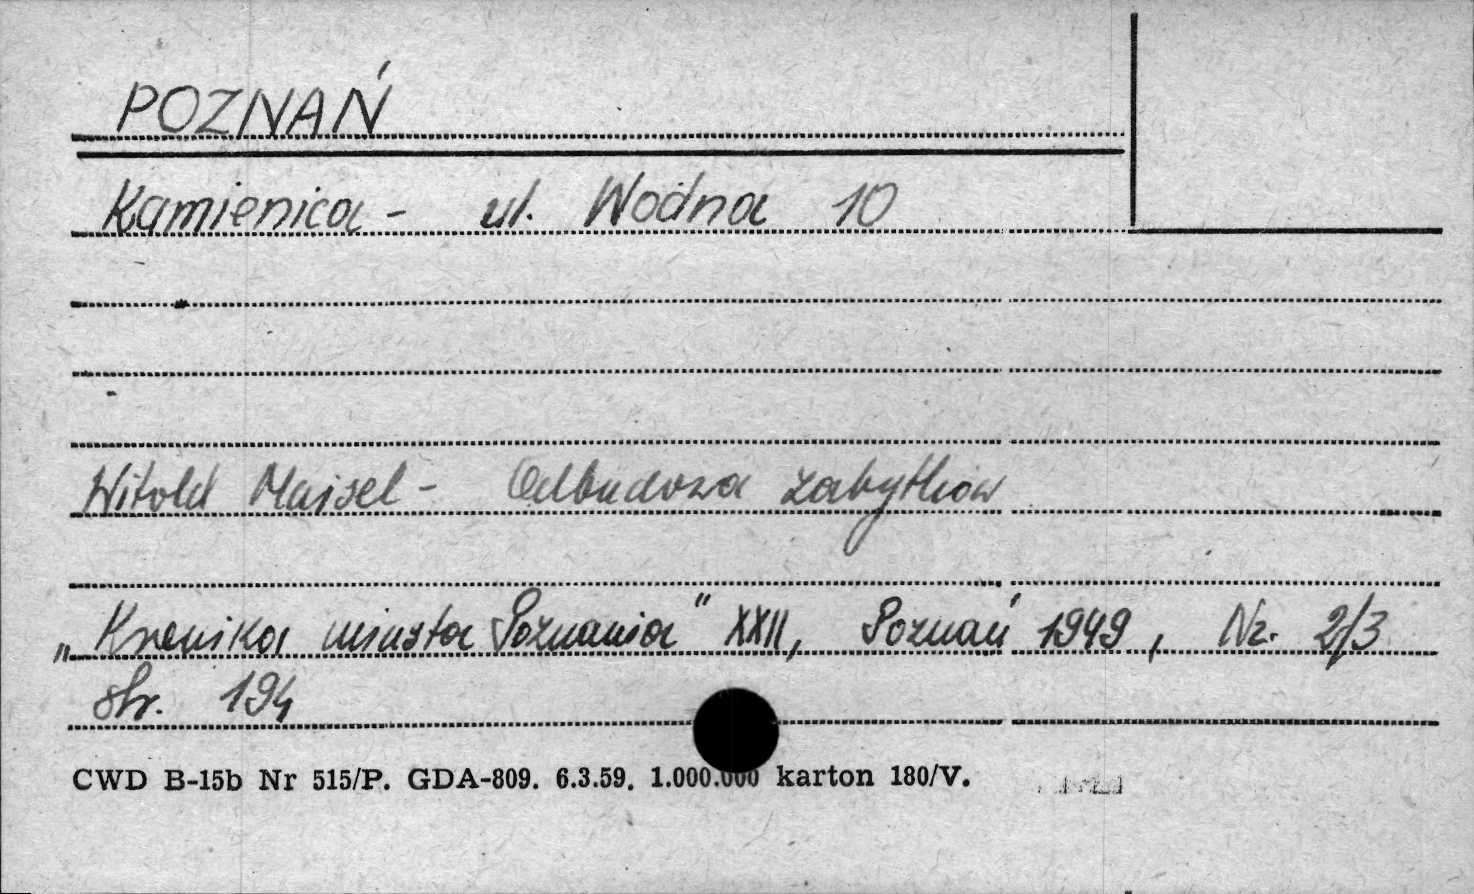 POZNAŃ
Kamienica - ul. Wodna 10
Witold Maisel - Odbudowa zabytków
„Kronika miasta Poznania" XXII, Poznań 1949, Nr. 2/3
str. 194
CWD B-15b Nr 515/P. GDA-809. 6.3.59. 1.000.000 karton 180/V.